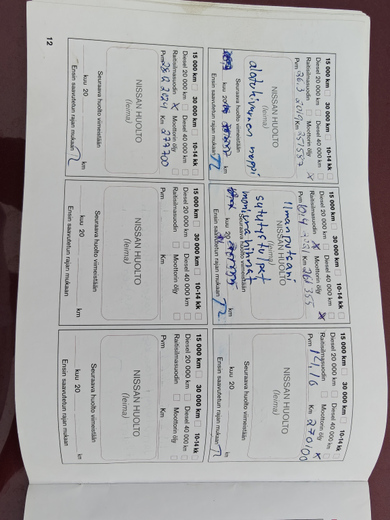 15 000 km 30 000 km 10-14 kk
Diesel 20 000 km Diesel 40 000 km
Raitisilmasuodin Moottorin öljy x
Pvm 26.3 2019 Km
NISSAN HUOLTO
(leima)
Seuraava huolto viimeistään
kuu 20 km
Ensin saavutetun rajan mukaan
15 000 km 30 000 km 10-14 kk
Diesel 20 000 km Diesel 40 000 km x
Raitisilmasuodin x Moottorin öljy x
Pvm Km
Ilmanputsari
NISSAN HUOLTO
(leima)
kuu 20 km
Ensin saavutetun rajan mukaan
15 000 km 30 000 km 10-14 kk
Diesel 20 000 km Diesel 40 000 km
Raitisilmasuodin Moottorin öljy x
Pvm Km 270100
NISSAN HUOLTO
(leima)
Seuraava huolto viimeistään
kuu 20 km
Ensin saavutetun rajan mukaan
15 000 km 30 000 km 10-14 kk
Diesel 20 000 km Diesel 40 000 km
Raitisilmasuodin x Moottorin öljy
Pvm Km 277700
NISSAN HUOLTO
(leima)
Seuraava huolto viimeistään
kuu 20 km
Ensin saavutetun rajan mukaan
15 000 km 30 000 km 10-14 kk
Diesel 20 000 km Diesel 40 000 km
Raitisilmasuodin Moottorin öljy
Pvm Km
NISSAN HUOLTO
(leima)
Seuraava huolto viimeistään
kuu 20 km
Ensin saavutetun rajan mukaan
15 000 km 30 000 km 10-14 kk
Diesel 20 000 km Diesel 40 000 km
Raitisilmasuodin Moottorin öljy
Pvm Km
NISSAN HUOLTO
(leima)
Seuraava huolto viimeistään
kuu 20 km
Ensin saavutetun rajan mukaan
12